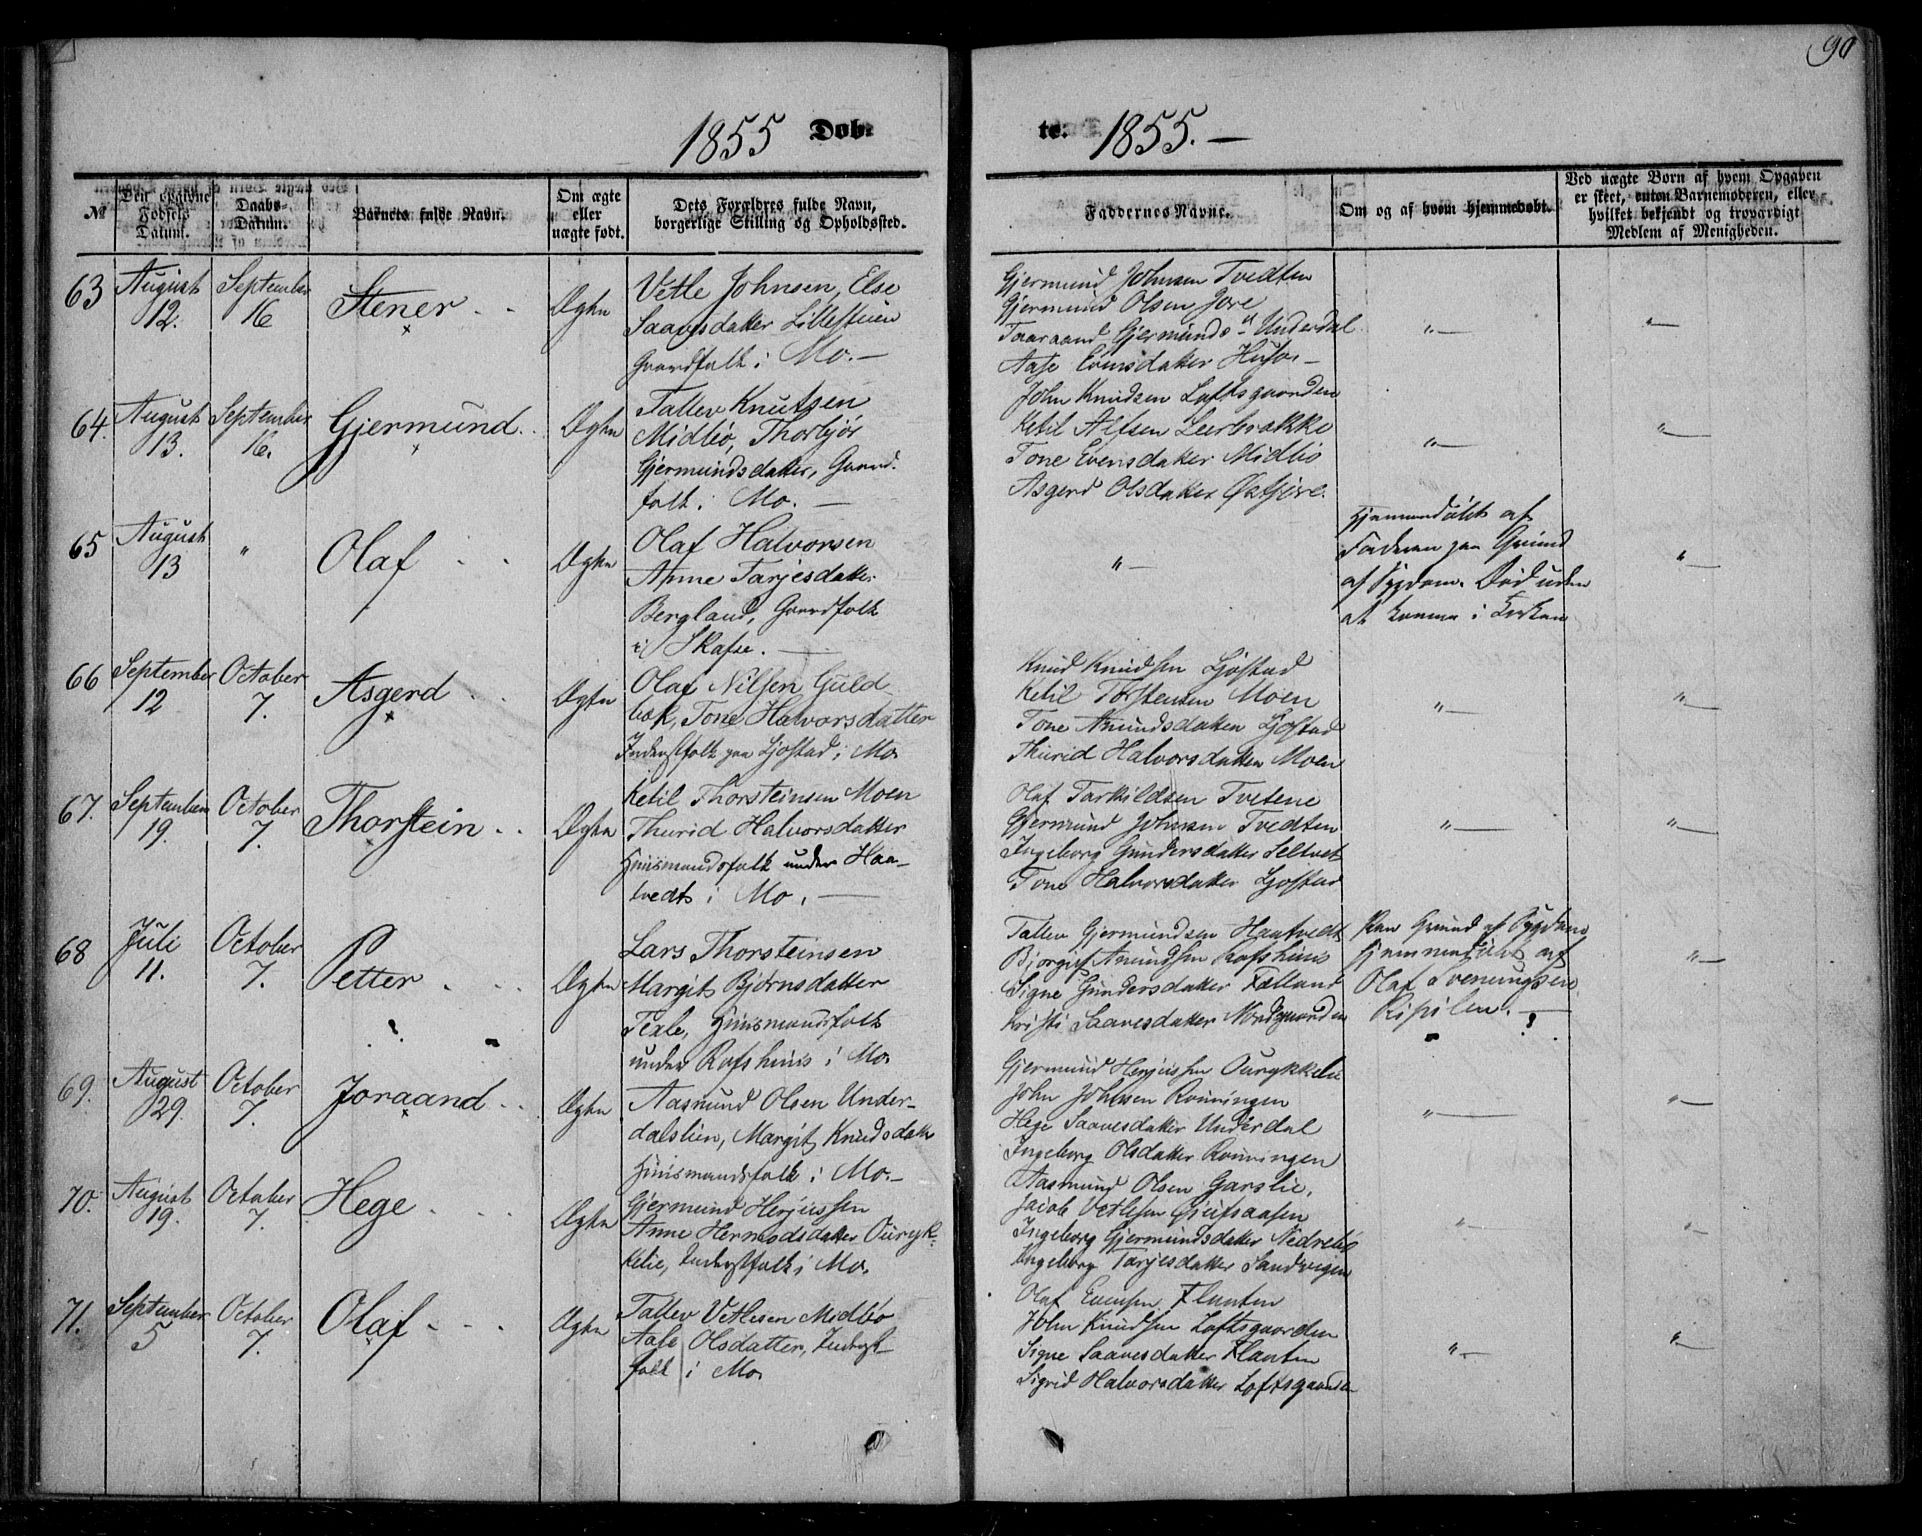 90
1855 Dob-
te. 1855.-
№
Den opgivne Fødsels Datum.
Daabs-Datum.
Barnets fulde Navn.
Om ægte eller uægte født.
Dets Forældres fulde Navn, borgerlige Stilling og Opholdssted.
Faddernes Navne.
Om og af hvem hjemmedøbt.
Ved uægte Børn af hvem Opgaven er skeet, enten Barnemoderen, eller hvilket bekjendt og troværdigt Medlem af Menigheden.
63
August 12.
September 16
Stener
Ægte
Vetle Johnsen, Else
Saavesdatter Lillestuen
Gaardfolk i Mo.
Gjermund Johnsen Tvedten
Gjermund Olsen Jore
Taaraand Gjermunds Underdal
Aase Evensdatter
"
"
64.
August 13.
September 16.
Gjermund
Ægte
Tallev Knutsen
Midbø, Thorbjør
Gjermundsdatter, Gaard-
folk i Mo.
John Knudsen Loftsgaarden
Ketil Alfsen Leerbrække
Tone Evensdatter Midbø
Asgerd Olsdatter
"
"
65
August 13
"
Olaf
Ægte
Olaf Halvorsen
Anne Tarjesdatter
Bergland, Gaardfolk
i Skafse.
"
Hjemmedøbt af
Faderen paa Grund
af Sygdom. Død uden
at komme i Kirken
"
66
September 12
October 7.
Asgerd
Ægte
Olaf Nilsen Guld-
bæk, Tone Halvorsdatter
Inderstfolk paa Ljostad i Mo.
Knud Knudsen Ljostad
Ketil Torstensen Moen
Tone Amundsdatter Ljostad
Thurid Halvorsdatter Moen
"
"
67.
September 19.
October 7.
Thorstein
Ægte
Ketil Thorsteinsen Moen
Thurid Halvorsdatter
Huusmandsfolk under Haa-
tvedt i Mo.
Olaf Tarkildsen Tvetene
Gjermund Johnsen Tvedten
Ingeborg Gundersdatter Seltveit
Tone Halvorsdatter Ljostad
"
"
68
Juli 11.
October 7.
Petter
Ægte
Lars Thorsteinsen
Margit Bjørnsdatter
Huusmandsfolk
under Rofshuus i Mo
Tallev Gjermundsen Haatvedt
Bjørgulf Amundsen Rofshuus
Signe Gundersdatter Felland
Kristi Saavesdatter Nordgaarden
Paa Grund af Sygdom
hjemmedøbt af
Olaf Sveinungsen
"
69.
August 29.
October 7.
Joraand
Ægte
Aasmund Olsen Under-
dalslien, Margit Knudsdatter
Huusmandsfolk i Mo.
Gjermund Herjussen Ourykkelie
John Johnsen Rønningen
Hege Saavesdatter Underdal
Ingeborg Olsdatter Rønningen
"
"
70.
August 19.
October 7.
Hege
Ægte
Gjermund Herjussen
Anne Hermodsdatter Ouryk-
kelie, Inderstfolk i Mo.
Aasmund Olsen Garslie.
Jacob Vetlesen
Ingeborg Gjermundsdatter Nedrebø
Ingeborg Tarjesdatter Sandvigen
"
"
71.
September 5
October 7.
Olaf
Ægte
Tallev Vetlesen Midbø
Aase Olsdatter, Inderst-
folk i Mo.
Olaf Evensen Flaaten
John Knudsen Loftsgaarden
Signe Saavesdatter Flaaten
Sigrid Halvorsdatter Loftsgaarden
"
"